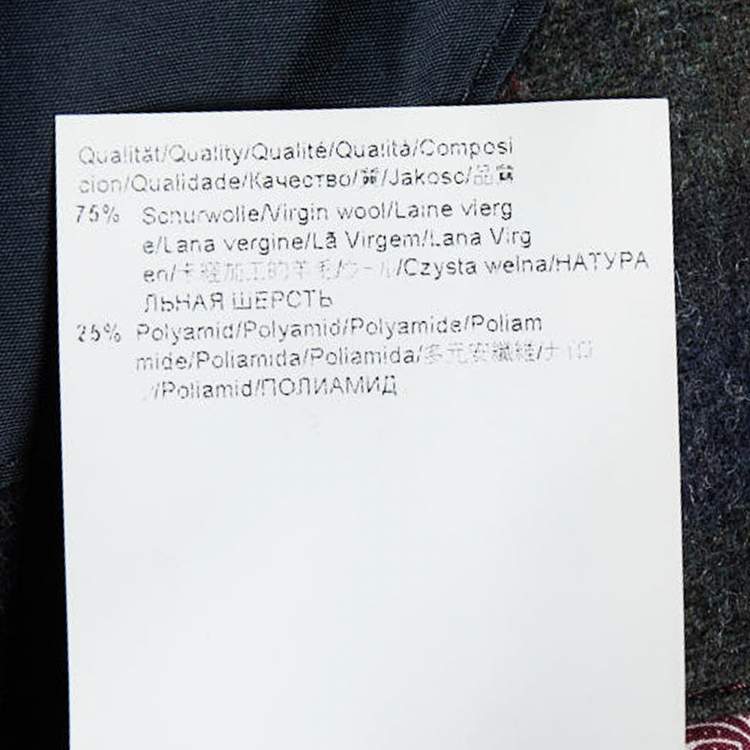 Qualität/Quality/Qualité/Qualità/Composi
cion/Qualidade/Качество/質/Jakosc/品質
75% Schurwolle/Virgin wool/Laine vierg
e/Lana vergine/Lã Virgem/Lana Virg
en/未經加工的羊毛/ウール/Czysta welna/НАТУРА
ЛЬНАЯ ШЕРСТЬ
25% Polyamid/Polyamid/Polyamide/Poliam
mide/Poliamida/Poliamida/多元安纖維/ナイロ
ン/Poliamid/ПОЛИАМИД